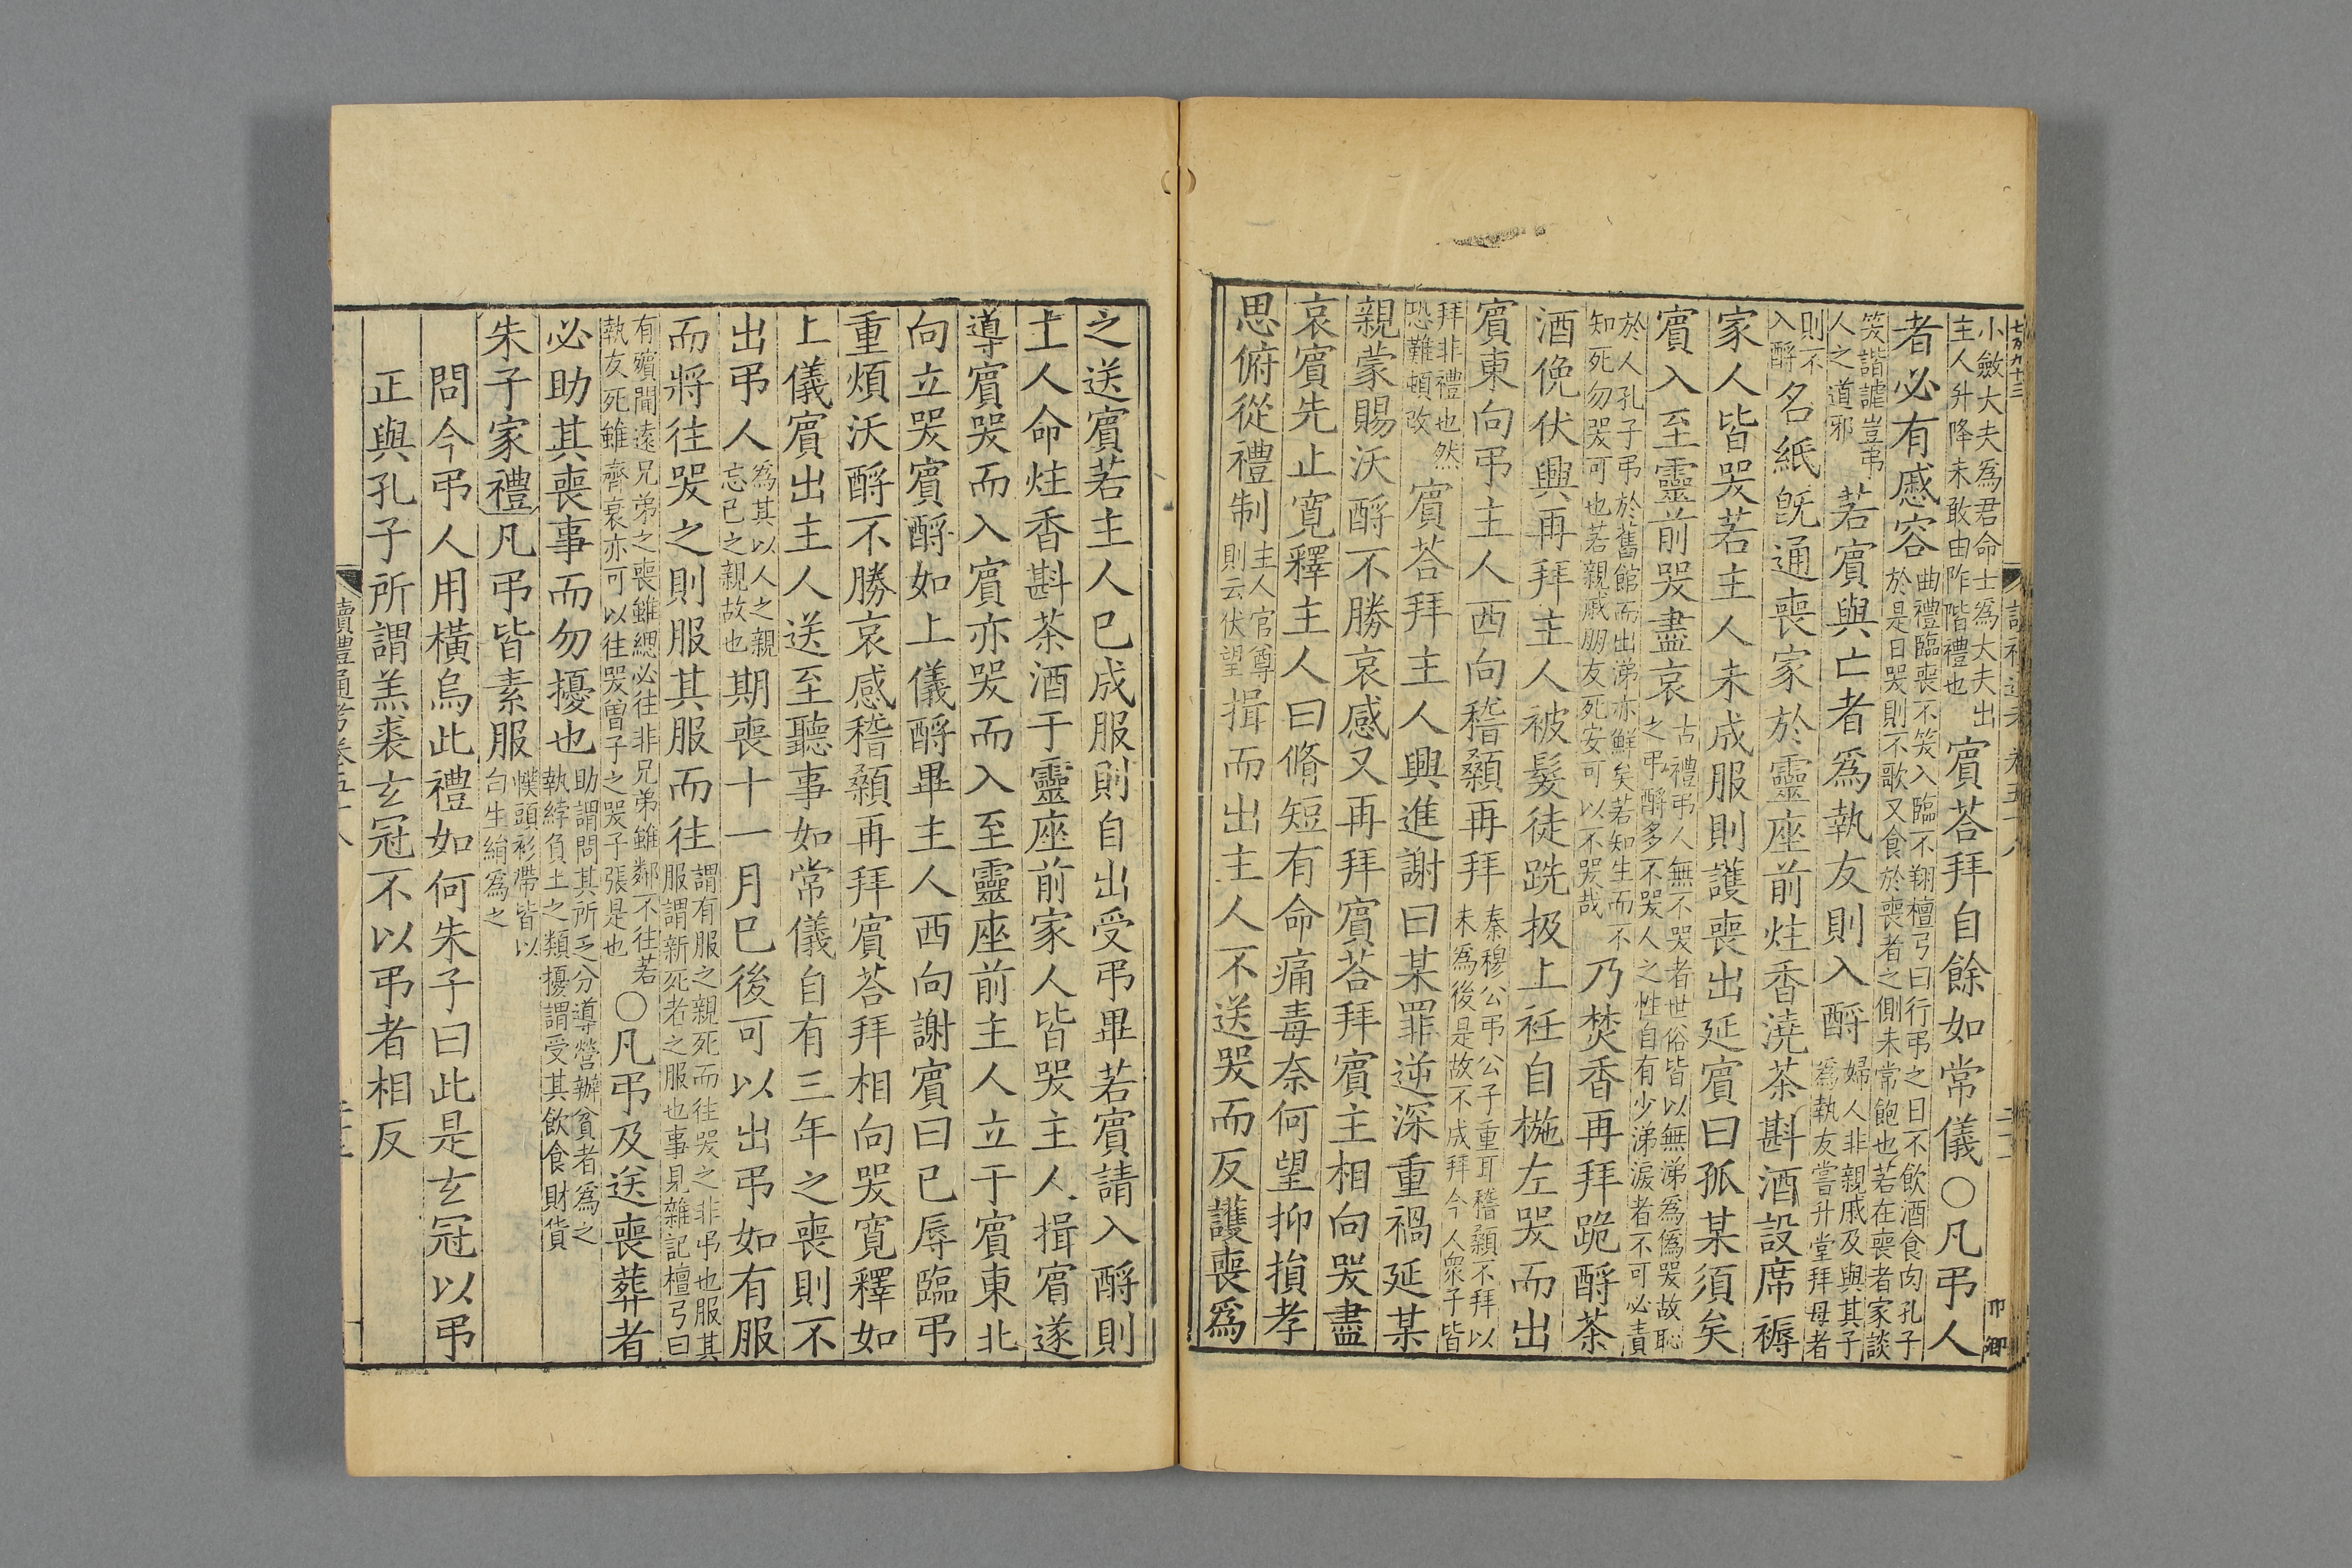 七万九十三
小斂大夫為君命士為大夫出
主人升降未敢由阼階禮也
賔荅拜自餘如常儀○凡弔人
者必有慼容
曲禮臨喪不笑入臨不翔檀弓曰行弔之日不飲酒食肉孔子
於是日哭則不歌又食於喪者之側未常飽也若在喪者家談
笑諧謔豈弔
人之道邪
若賔與亡者爲執友則入酹
婦人非親戚及與其子
爲執友嘗升堂拜母者
則不
入酹
名紙旣通喪家於靈座前炷香澆茶斟酒設席褥
家人皆哭若主人未成服則護喪出延賔曰孤某須矣
賔入至靈前哭盡哀
古禮弔人無不哭者世俗皆以無涕爲僞哭故恥
之弔酹多不哭人之性自有少涕淚者不可必責
於人孔子弔於舊館而出涕亦鮮矣若知生而不
知死勿哭可也若親戚朋友死安可以不哭哉
乃焚香再拜跪酹茶
酒俛伏興再拜主人被髮徒跣扱上衽自拖左哭而出
賔東向弔主人西向稽顙再拜
秦穆公弔公子重耳稽顙不拜以
未為後是故不成拜今人衆子皆
拜非禮也然
恐難頓改
賔荅拜主人興進謝曰某罪逆深重禍延某
親蒙賜沃酹不勝哀感又再拜賔荅拜賔主相向哭盡
哀賔先止寛釋主人曰脩短有命痛毒奈何望抑損孝
思俯從禮制
主人官尊
則云伏望
揖而出主人不送哭而反護喪爲
之送賔若主人已成服則自出受弔畢若賔請入酹則
主人命炷香斟茶酒于靈座前家人皆哭主人揖賔遂
導賔哭而入賔亦哭而入至靈座前主人立于賔東北
向立哭賔酹如上儀酹畢主人西向謝賔曰已辱臨弔
重煩沃酹不勝哀感稽顙再拜賔荅拜相向哭寛釋如
上儀賔出主人送至聽事如常儀自有三年之喪則不
出弔人
爲其以人之親
忘已之親故也
期喪十一月已後可以出弔如有服
而將往哭之則服其服而往
謂有服之親死而往哭之非弔也服其
服謂新死者之服也事見雜記檀弓曰
有殯聞遠兄弟之喪雖緦必往非兄弟雖鄰不往若
執友死雖齊衰亦可以往哭曾子之哭子張是也
○凡弔及送喪葬者
必助其喪事而勿擾也
助謂問其所乏分導營辦貧者爲之
執綍負土之類擾謂受其飲食財貨
朱子家禮凡弔皆素服
幞頭衫帶皆以
白生絹爲之
問今弔人用橫烏此禮如何朱子曰此是玄冠以弔
正與孔子所謂羔裘玄冠不以弔者相反
讀禮通考卷五十八